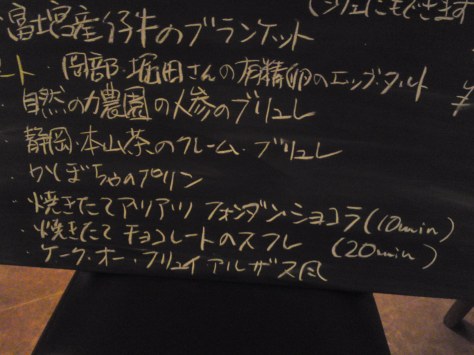 にもできます
富士宮産仔牛のブランケット
ート・岡部・堀田さんの有精卵のエッグ・タルト ¥
・自然の力農園の人参のブリュレ
・静岡・本山茶のクレーム・ブリュレ
・かぼちゃのプリン
・焼きたてアツアツ フォンダン・ショコラ(10min)
・焼きたて チョコレートのスフレ (20min)
・ケーク・オー・フリュイ アルザス風